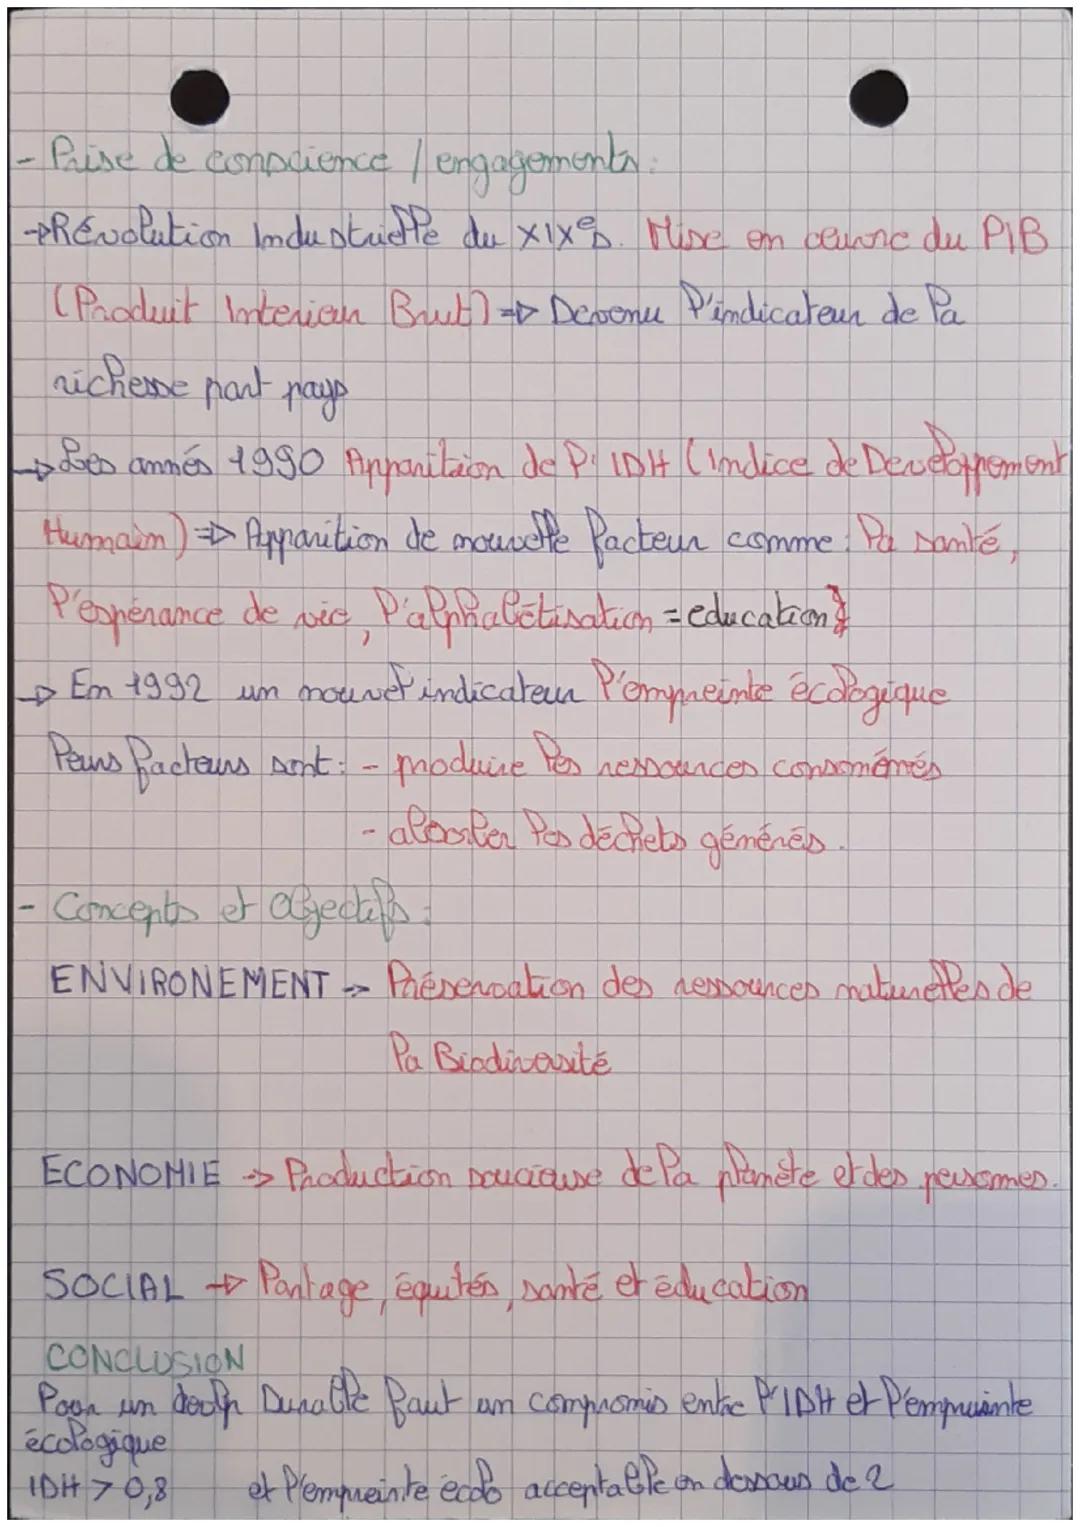 - Prise de conscience / engagements :
→ Révolution Industrielle du XIXe s. Mise en œuvre du PIB
(Produit Interieur Brut) => Devenu l'indicateur de la
richesse part pays
→ Les annés 1990 Apparition de l' IDH (Indice de Developpement
Humain) => Apparition de nouvelle facteur comme : la santé,
l'espérance de vie, l'alphabétisation = education
→ En 1992 un nouvel indicateur l'empreinte écologique
leurs facteurs sont : - produire les ressources consomémés
- absorber les déchets générés.
- Concepts et objectifs :
ENVIRONEMENT → Préservation des ressources naturelles de
la Biodiversité
ECONOMIE → Production soucieuse de la planète et des personnes.
SOCIAL → Partage, équités, santé et éducation
CONCLUSION
Pour un Durable faut un compromis entre l'IDH et l'empreinte
écologique
IDH > 0,8 et l'empreinte écolo acceptable en dessous de 2